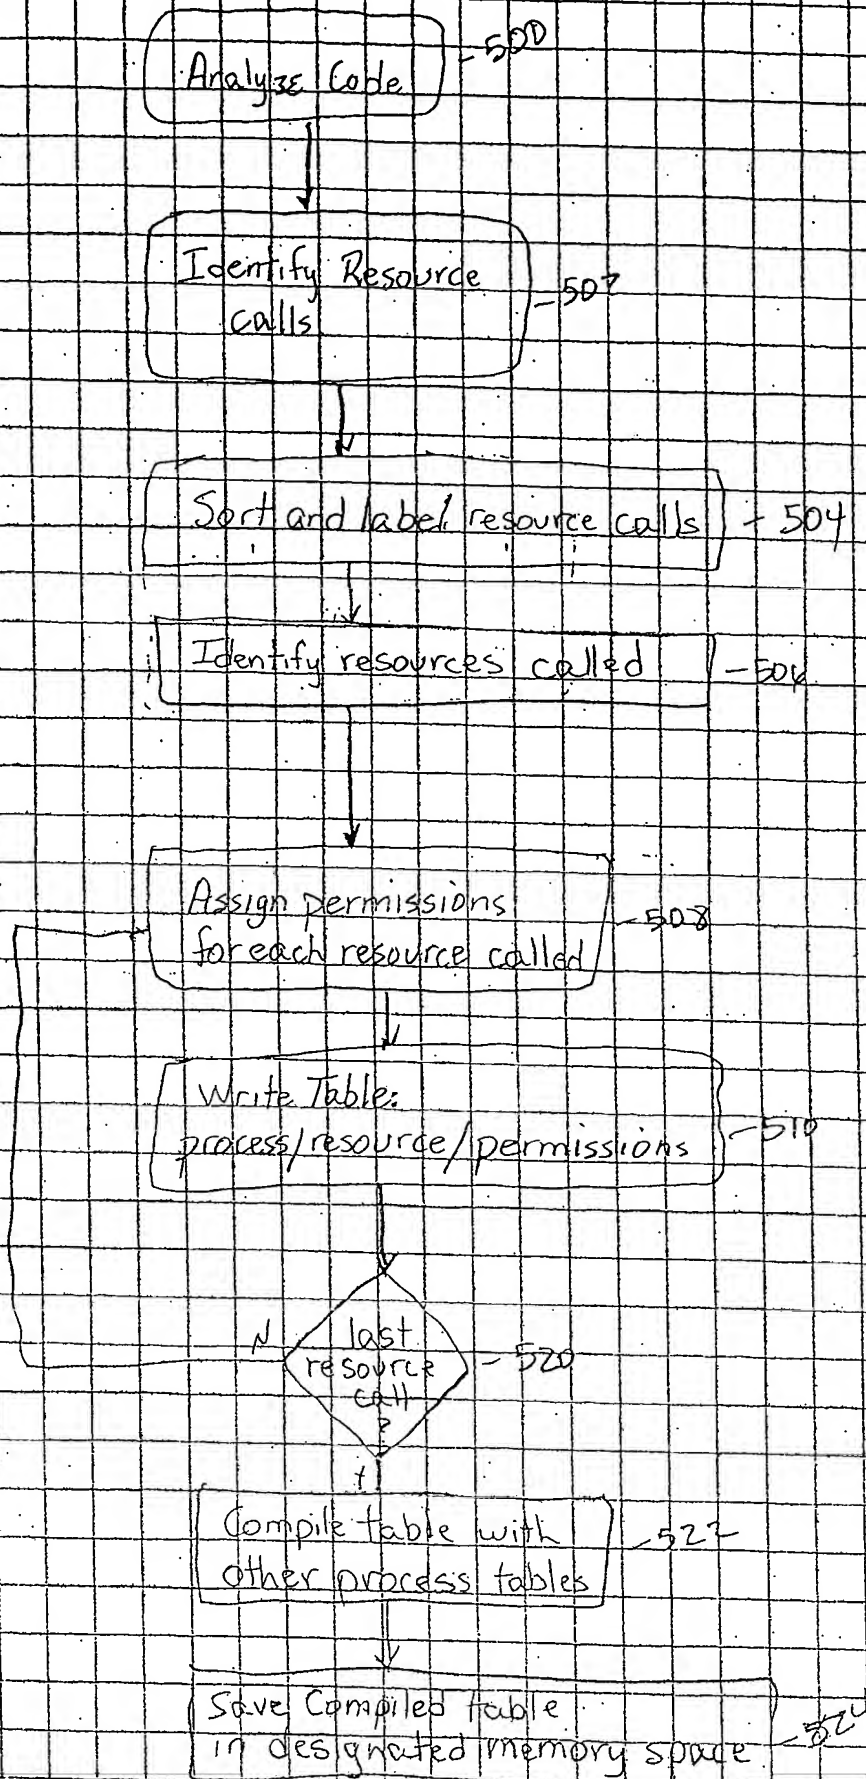 Analyze Code
- 500
Identify Resource
calls
- 502
Sort and label resource calls
- 504
Identify resources called
- 506
Assign permissions
for each resource called
- 508
Write Table:
process/resource/permissions
- 510
N
last
resource
call
?
- 520
Y
Compile table with
other process tables
- 522
Save Compiled table
in designated memory space